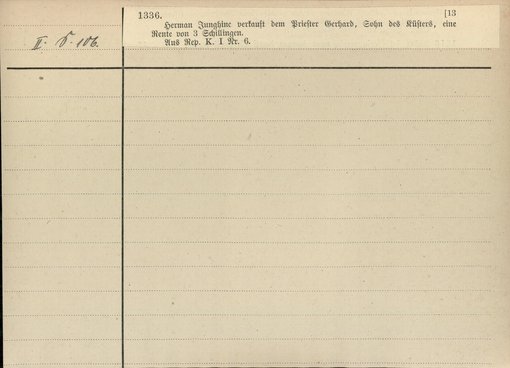 1336. [13
Herman Junghinc verkauft dem Priester Gerhard, Sohn des Küsters, eine
Rente von 3 Schillingen.
Aus Rep. K. I Nr. 6.
II. 106.